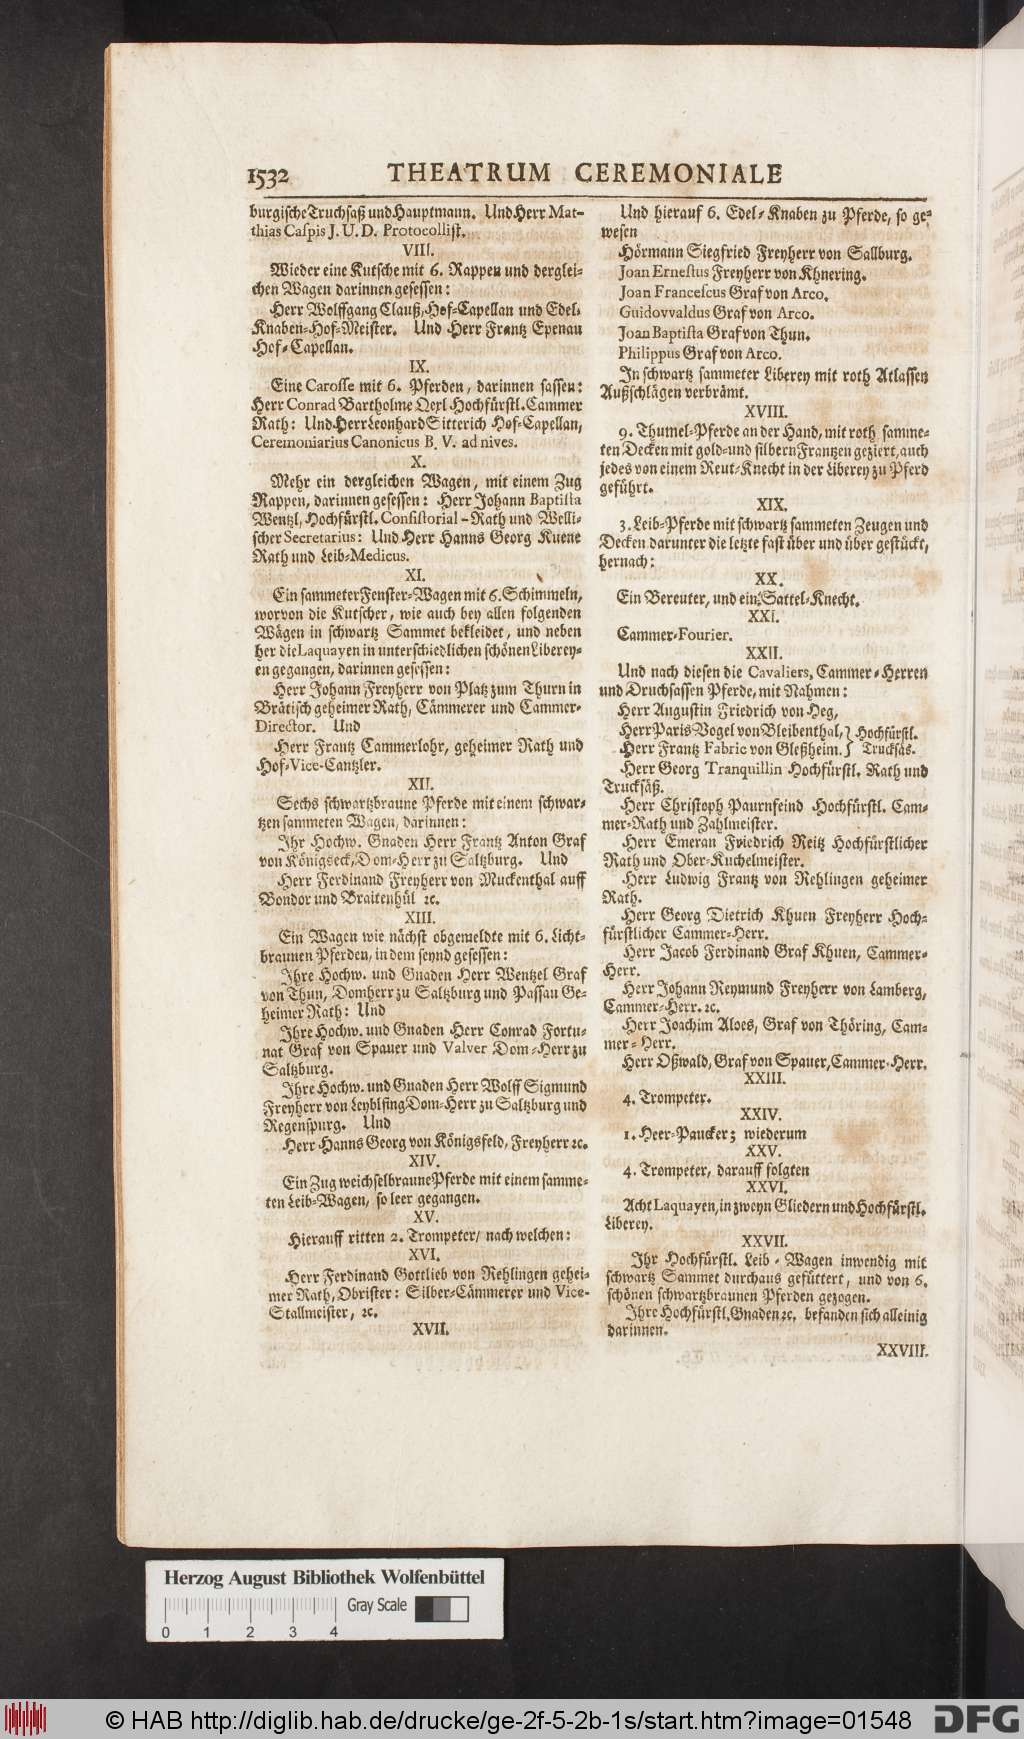 1532 THEATRUM CEREMONIALE
burgische Truchsaß und Hauptmann. Und Herr Mat-
thias Caspis J. U. D. Protocollist.
VIII.
Wieder eine Kutsche mit 6. Rappen und derglei-
chen Wagen darinnen gesessen:
Herr Wolffgang Clauß, Hof-Capellan und Edel-
Knaben-Hof-Meister. Und Herr Frantz Epenau
Hof-Capellan.
IX.
Eine Carosse mit 6. Pferden, darinnen sassen:
Herr Conrad Bartholme Oexl Hochfürstl. Cammer
Rath: Und Herr Leonhard Sitterich Hof-Capellan,
Ceremoniarius Canonicus B. V. ad nives.
X.
Mehr ein dergleichen Wagen, mit einem Zug
Rappen, darinnen gesessen: Herr Johann Baptista
Wentzl, Hochfürstl. Consistorial-Rath und Welli-
scher Secretarius: Und Herr Hanns Georg Kuene
Rath und Leib-Medicus.
XI.
Ein sammeter Fenster-Wagen mit 6. Schimmeln,
worvon die Kutscher, wie auch bey allen folgenden
Wägen in schwartz Sammet bekleidet, und neben
her die Laquayen in unterschiedlichen schönen Liberey-
en gegangen, darinnen gesessen:
Herr Johann Freyherr von Platz zum Thurn in
Brätisch geheimer Rath, Cämmerer und Cammer-
Director. Und
Herr Frantz Cammerlohr, geheimer Rath und
Hof-Vice-Cantzler.
XII.
Sechs schwartzbraune Pferde mit einem schwar-
tzen sammeten Wagen, darinnen:
Ihr Hochw. Gnaden Herr Frantz Anton Graf
von Königseck, Dom-Herr zu Saltzburg. Und
Herr Ferdinand Freyherr von Muckenthal auff
Bondor und Braitenhül ꝛc.
XIII.
Ein Wagen wie nächst obgemeldte mit 6. Licht-
braunen Pferden, in dem seynd gesessen:
Ihre Hochw. und Gnaden Herr Wentzel Graf
von Thun, Domherr zu Saltzburg und Passau Ge-
heimer Rath: Und
Ihre Hochw. und Gnaden Herr Conrad Fortu-
nat Graf von Spauer und Valver Dom-Herr zu
Saltzburg.
Ihre Hochw. und Gnaden Herr Wolff Sigmund
Freyherr von Leyblfing Dom-Herr zu Saltzburg und
Regenspurg. Und
Herr Hanns Georg von Königsfeld, Freyherr ꝛc.
XIV.
Ein Zug weichselbraune Pferde mit einem samme-
ten Leib-Wagen, so leer gegangen.
XV.
Hierauff ritten 2. Trompeter/ nach welchen:
XVI.
Herr Ferdinand Gottlieb von Rehlingen gehei-
mer Rath, Obrister: Silber-Cämmerer und Vice-
Stallmeister, ꝛc.
XVII.
Und hierauf 6. Edel-Knaben zu Pferde, so ge-
wesen
Hörmann Siegfried Freyherr von Sallburg.
Joan Ernestus Freyherr von Khnering.
Joan Francescus Graf von Arco.
Guidovvaldus Graf von Arco.
Joan Baptista Graf von Thun.
Philippus Graf von Arco.
In schwartz sammeter Liberey mit roth Atlassen
Außschlägen verbrämt.
XVIII.
9. Thumel-Pferde an der Hand, mit roth samme-
ten Decken mit gold- und silbern Frantzen geziert, auch
jedes von einem Reut-Knecht in der Liberey zu Pferd
geführt.
XIX.
3. Leib-Pferde mit schwartz sammeten Zeugen und
Decken darunter die letzte fast über und über gestückt,
hernach:
XX.
Ein Bereuter, und ein Sattel-Knecht.
XXI.
Cammer-Fourier.
XXII.
Und nach diesen die Cavaliers, Cammer-Herren
und Druchsassen Pferde, mit Nahmen:
Herr Augustin Friedrich von Heg,
Herr Paris Vogel von Bleibenthal, } Hochfürstl.
Herr Frantz Fabric von Gleßheim. } Trucksäs.
Herr Georg Tranquillin Hochfürstl. Rath und
Trucksäß.
Herr Christoph Paurnfeind Hochfürstl. Cam-
mer-Rath und Zahlmeister.
Herr Emeran Friedrich Reitz Hochfürstlicher
Rath und Ober-Kuchelmeister.
Herr Ludwig Frantz von Rehlingen geheimer
Rath.
Herr Georg Dietrich Khuen Freyherr Hoch-
fürstlicher Cammer-Herr.
Herr Jacob Ferdinand Graf Khuen, Cammer-
Herr.
Herr Johann Reymund Freyherr von Lamberg,
Cammer-Herr. ꝛc.
Herr Joachim Aloes, Graf von Thöring, Cam-
mer-Herr.
Herr Oßwald, Graf von Spauer, Cammer-Herr.
XXIII.
4. Trompeter.
XXIV.
1. Heer-Paucker; wiederum
XXV.
4. Trompeter, darauff folgten
XXVI.
Acht Laquayen, in zweyn Gliedern und Hochfürstl.
Liberey.
XXVII.
Ihr Hochfürstl. Leib-Wagen inwendig mit
schwartz Sammet durchaus gefüttert, und von 6.
schönen schwartzbraunen Pferden gezogen.
Ihre Hochfürstl. Gnaden ꝛc. befanden sich alleinig
darinnen.
XXVIII.
Herzog August Bibliothek Wolfenbüttel
Gray Scale
0 1 2 3 4
© HAB http://diglib.hab.de/drucke/ge-2f-5-2b-1s/start.htm?image=01548
DFG